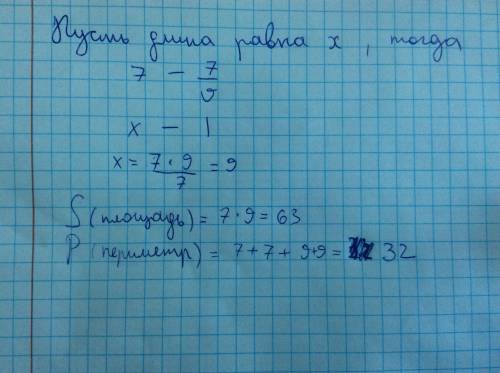 Пусть длина равна x, тогда
7 - 7/9
x - 1
x = 7·9/7 = 9
S (площадь) = 7·9 = 63
P (периметр) = 7+7+9+9= 32